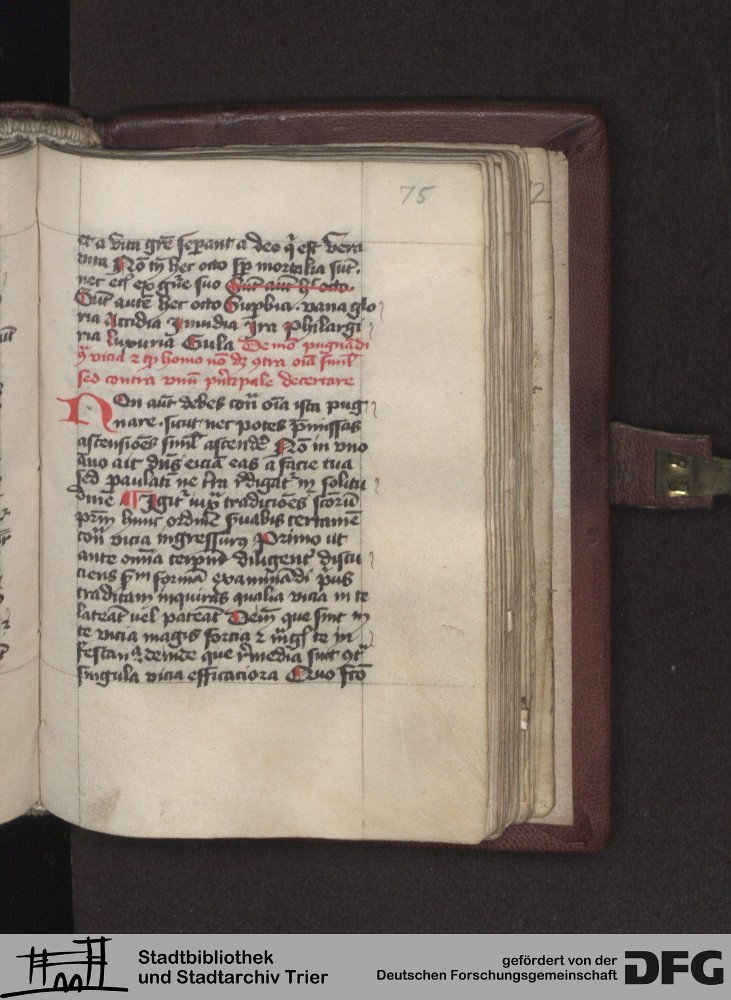 75
et a vita grē sepant a deo q̄ est vera
vita Nō tn̄ hec octo sp̄ mortalia sūt.
nec ex gn̄e suo Sūt autē hec octo.
Sūt autē hec octo Supbia. vana glo
ria Accidia Invidia Ira philargi
ria luxuria Gula De mō pugnādi
ꝯtra vicia et qp homo nō dꝫ ꝯtra oīa siml'
sed contra vnū pn̄cipale decertare
Non aūt debes cont̄ oīa ista pug
nare. sicut nec potes p̄missas
ascensiōes siml' ascendē Nō in vno
āno ait dn̄s eiciā eas a facie tua
sed paulati ne t̄ra r̄digat̄ in solitu
dinē Igit̄ iuxͣ tradiciōēs scōrū
p̄rm̄ hunc ordinē s̄uabis certamē
cont̄ vicia ingressurꝰ Primo ut
ante omīa teip̄m diligent̄ discu
ciens scd̄m formā exami͞adi prius
traditam inquiras qualia vicia in te
lateāt vel pateāt Dein̄ que sint in
te vicia magis forcia et mgꝭ te in
festancia deinde que r̄media sint ꝯt̄
singula vicia efficaciora Quo fcō
Stadtbibliothek
und Stadtarchiv Trier
gefördert von der
Deutschen Forschungsgemeinschaft
DFG